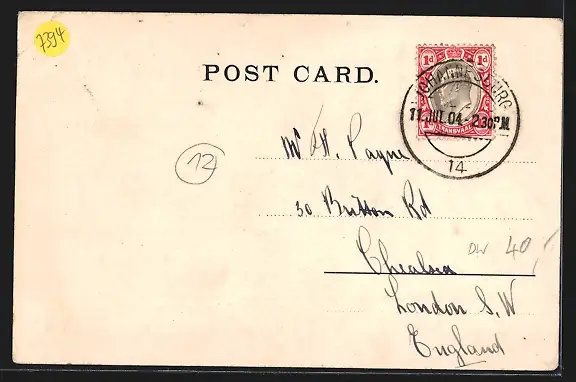 7394
POST CARD.
1d 1d
JOHANNESBURG
11 JUL 04 - 2 30 PM
TRANSVAAL
14
12
Mr H. Payne
30 Britton Rd
Chealsea
DW 40/
London S. W
England